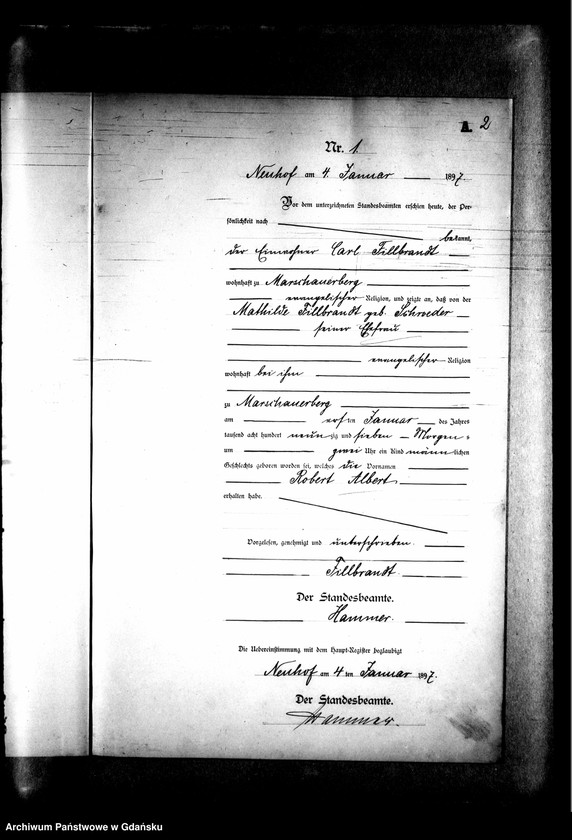 A. 2
Nr. 1.
Neuhof am 4. Januar 1897.
Vor dem unterzeichneten Standesbeamten erschien heute, der Per-
sönlichkeit nach
bekannt,
der Einwohner Carl Fillbrandt
wohnhaft zu Marschauerberg
evangelischer Religion, und zeigte an, daß von der
Mathilde Fillbrandt geb. Schroeder
seiner Ehefrau
evangelischer Religion
wohnhaft bei ihm
zu Marschauerberg
am ersten Januar des Jahres
tausend acht hundert neunzig und sieben Morgens
um zwei Uhr ein Kind männlichen
Geschlechts geboren worden sei, welches die Vornamen
Robert Albert
erhalten habe.
Vorgelesen, genehmigt und unterschrieben
Fillbrandt.
Der Standesbeamte.
Hammer.
Die Uebereinstimmung mit dem Haupt-Register beglaubigt
Neuhof am 4ten Januar 1897.
Der Standesbeamte.
Hammer.
Archiwum Państwowe w Gdańsku